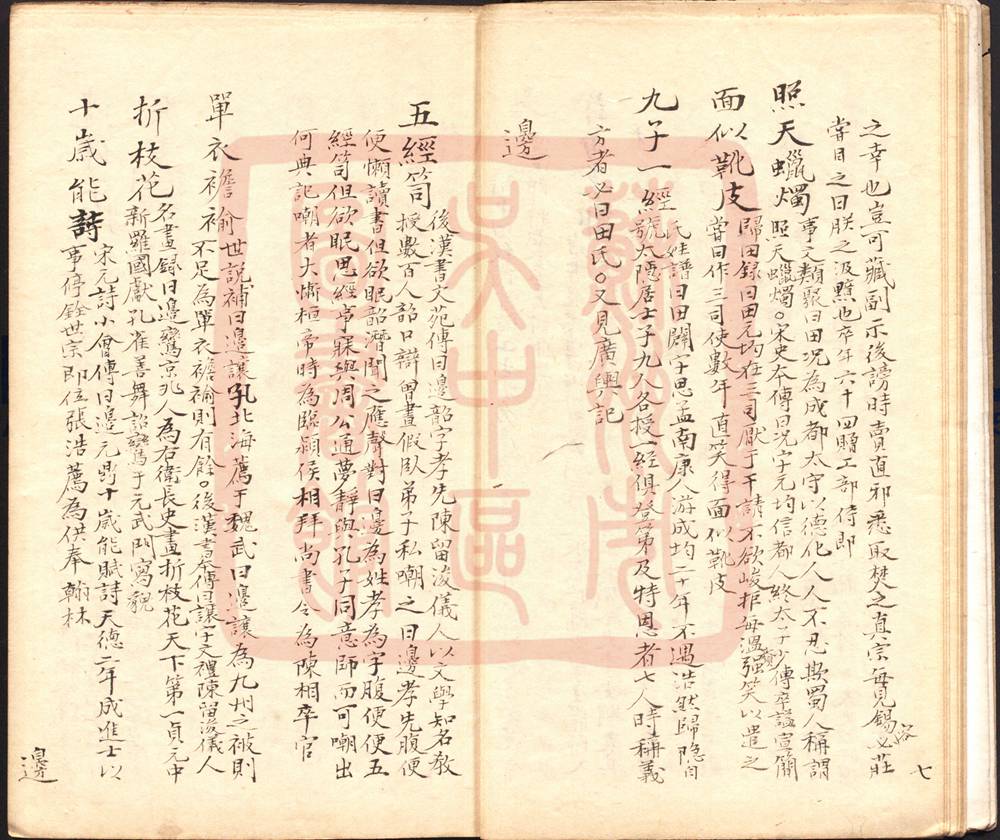 之幸也豈可藏副示後謗時賣直邪悉取焚之真宗每見錫必莊
容
當目之曰朕之汲黯也卒年六十四贈工部侍郎
照天蠟燭 事文類聚曰田況為成都太守以德化人人不忍欺蜀人稱謂
照天蠟燭○宋史本傳曰況字元均信都人終太子少傅卒謚宣簡
面似靴皮 歸田錄曰田元均在三司厭于干請不欲峻拒每溫強笑以遣之
嘗曰作三司使數年直笑得面似靴皮
九子一經 氏姓譜曰田闢字思孟南康人游成均二十年不遇浩然歸隱自
號太隱居士子九人各授一經俱登第及特恩者七人時稱義
方者必曰田氏○又見廣輿記
七
邊
五經笥 後漢書文苑傳曰邊韶字孝先陳留浚儀人以文學知名教
授數百人韶口辯曾晝假臥弟子私嘲之曰邊孝先腹便
便懶讀書但欲眠韶潛聞之應聲對曰邊為姓孝為字腹便便五
經笥但欲眠思經事寐與周公通夢靜與孔子同意師而可嘲出
何典記嘲者大慚桓帝時為臨潁侯相拜尚書令為陳相卒官
單衣襜褕 世說補曰邊讓孔北海薦于魏武曰邊讓為九州之被則
不足為單衣襜褕則有餘○後漢書本傳曰讓字文禮陳留浚儀人
折枝花 名畫錄曰邊鸞京兆人為右衛長史畫折枝花天下第一貞元中
新羅國獻孔雀善舞詔鸞于元武門寫貌
十歲能詩 宋元詩小會傳曰邊元鼎十歲能賦詩天德二年成進士以
事停銓世宗即位張浩薦為供奉翰林
邊